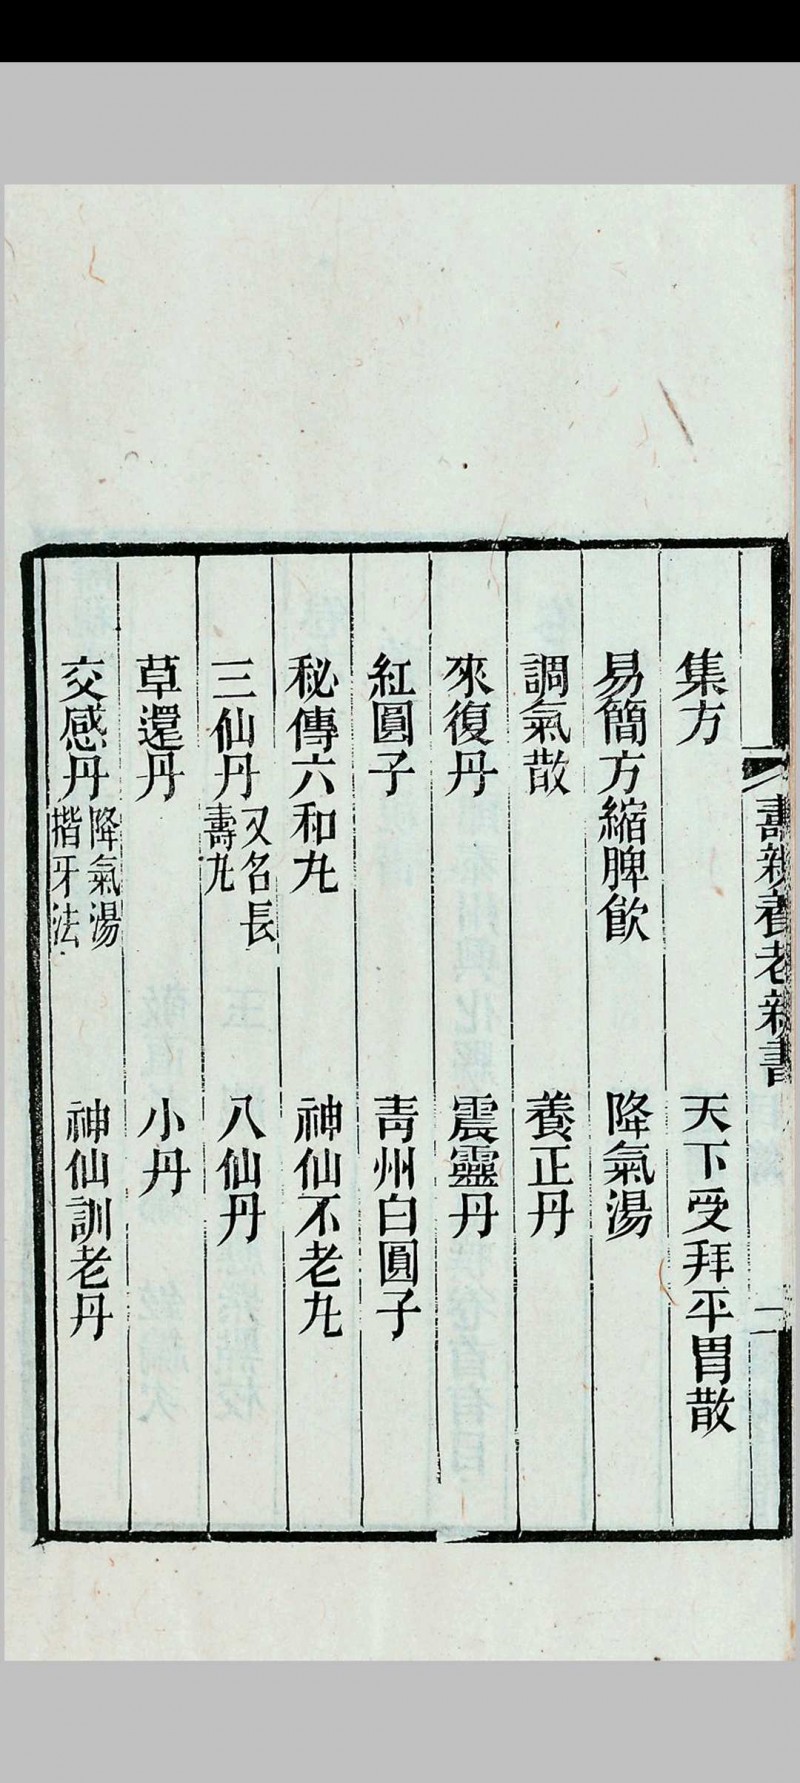 壽親養老新書
二
集方　天下受拜平胃散
易簡方縮脾飲　降氣湯
調氣散　養正丹
來復丹　震靈丹
紅圓子　青州白圓子
秘傳六和丸　神仙不老丸
三仙丹又名長壽丸　八仙丹
草還丹　小丹
交感丹降氣湯揩牙法　神仙訓老丹